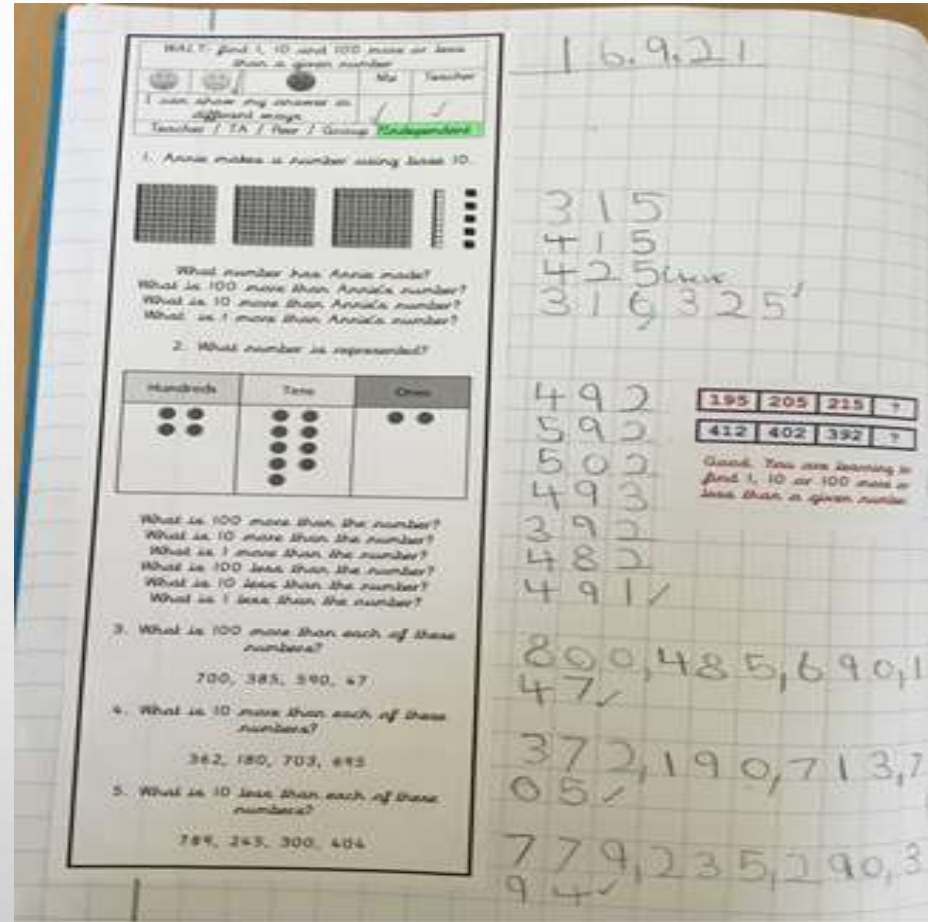 WALT: find 1, 10 and 100 more or less
than a given number
Me Teacher
I can show my answer in
different ways
Teacher / TA / Peer / Group Independent
1. Annie makes a number using base 10.
What number has Annie made?
What is 100 more than Annie's number?
What is 10 more than Annie's number?
What is 1 more than Annie's number?
2. What number is represented?
Hundreds Tens Ones
What is 100 more than the number?
What is 10 more than the number?
What is 1 more than the number?
What is 100 less than the number?
What is 10 less than the number?
What is 1 less than the number?
3. What is 100 more than each of these
numbers?
700, 385, 590, 47
4. What is 10 more than each of these
numbers?
362, 180, 703, 695
5. What is 10 less than each of these
numbers?
789, 245, 300, 404
16.9.21
315
415
425
316 325
492
592
502
493
392
482
491
195 205 215 ?
412 402 392 ?
Good. You are learning to
find 1, 10 or 100 more or
less than a given number
800,485,690,1
47
372,190,713,7
05
779,235,290,3
94